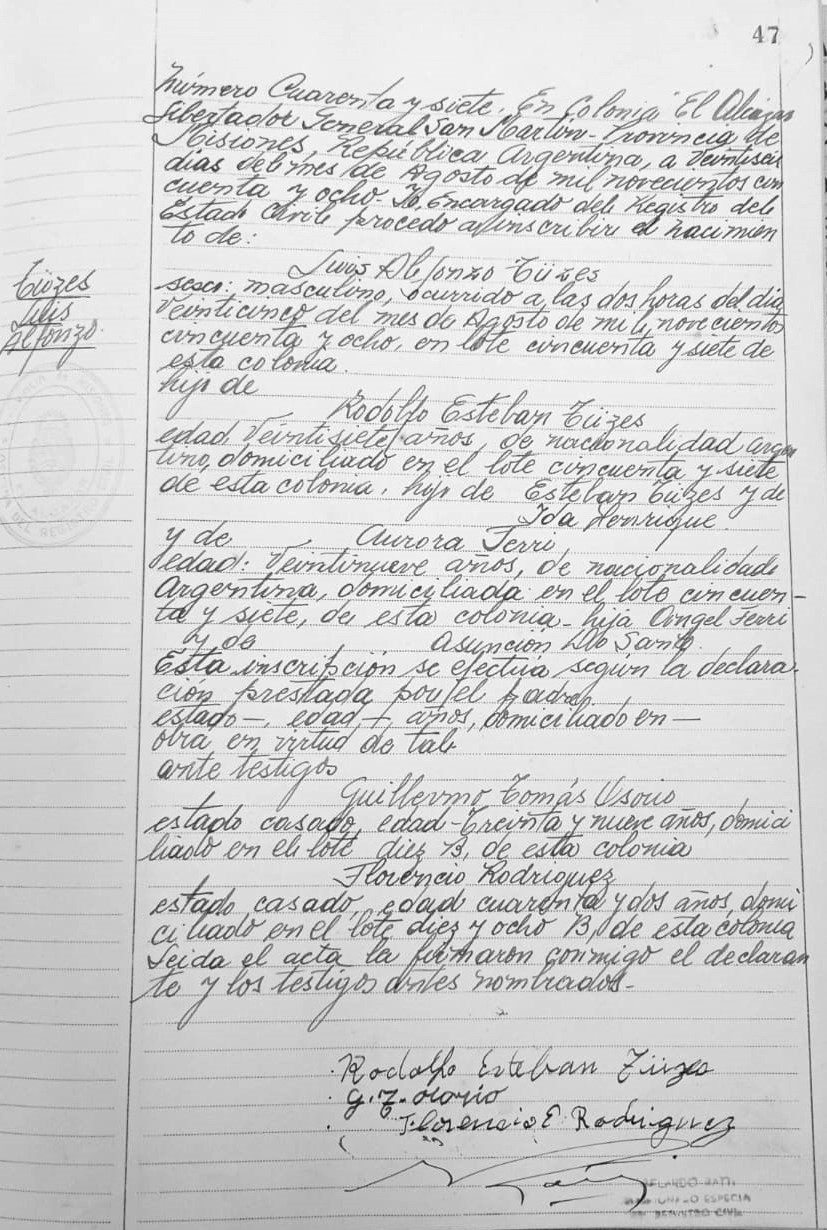 47
Número Cuarenta y siete. En Colonia El Alcázar
Libertador General San Martín - Provincia de
Misiones, República Argentina, a veintiseis
dias del mes de Agosto de mil novecientos cin
cuenta y ocho. Yo, Encargado del Registro del
Estado Civil procedo a inscribir el nacimien
to de:
Luis Alfonzo Tüzes
sexo: masculino, ocurrido a las dos horas del dia
veinticinco del mes de Agosto de mil novecientos
cincuenta y ocho, en lote cincuenta y siete de
esta colonia.
hijo de
Rodolfo Esteban Tüzes
edad Veintisiete años, de nacionalidad argen
tino, domiciliado en el lote cincuenta y siete
de esta colonia, hijo de Esteban Tüzes y de
Ida Henrique
y de Aurora Ferri
edad: Veintinueve años, de nacionalidad
Argentina, domiciliada en el lote cincuen-
ta y siete, de esta colonia - hija Angel Ferri
y de Asunción Santo
Esta inscripción se efectúa segun la declara-
ción prestada por el padre
estado —, edad — años, domiciliado en —
obra en virtud de tal
ante testigos
Guillermo Tomás Osorio
estado casado, edad - Treinta y nueve años, domici
liado en el lote diez B, de esta colonia
Florencio Rodriguez
estado casado, edad cuarenta y dos años, domi
ciliado en el lote diez y ocho B, de esta colonia
Leida el acta la firmaron conmigo el declaran
te y los testigos antes nombrados-
Tüzes
Luis
Alfonzo.
Rodolfo Esteban Tüzes
G. T. Osorio
Florencio E. Rodriguez
REGISTRO CIVIL